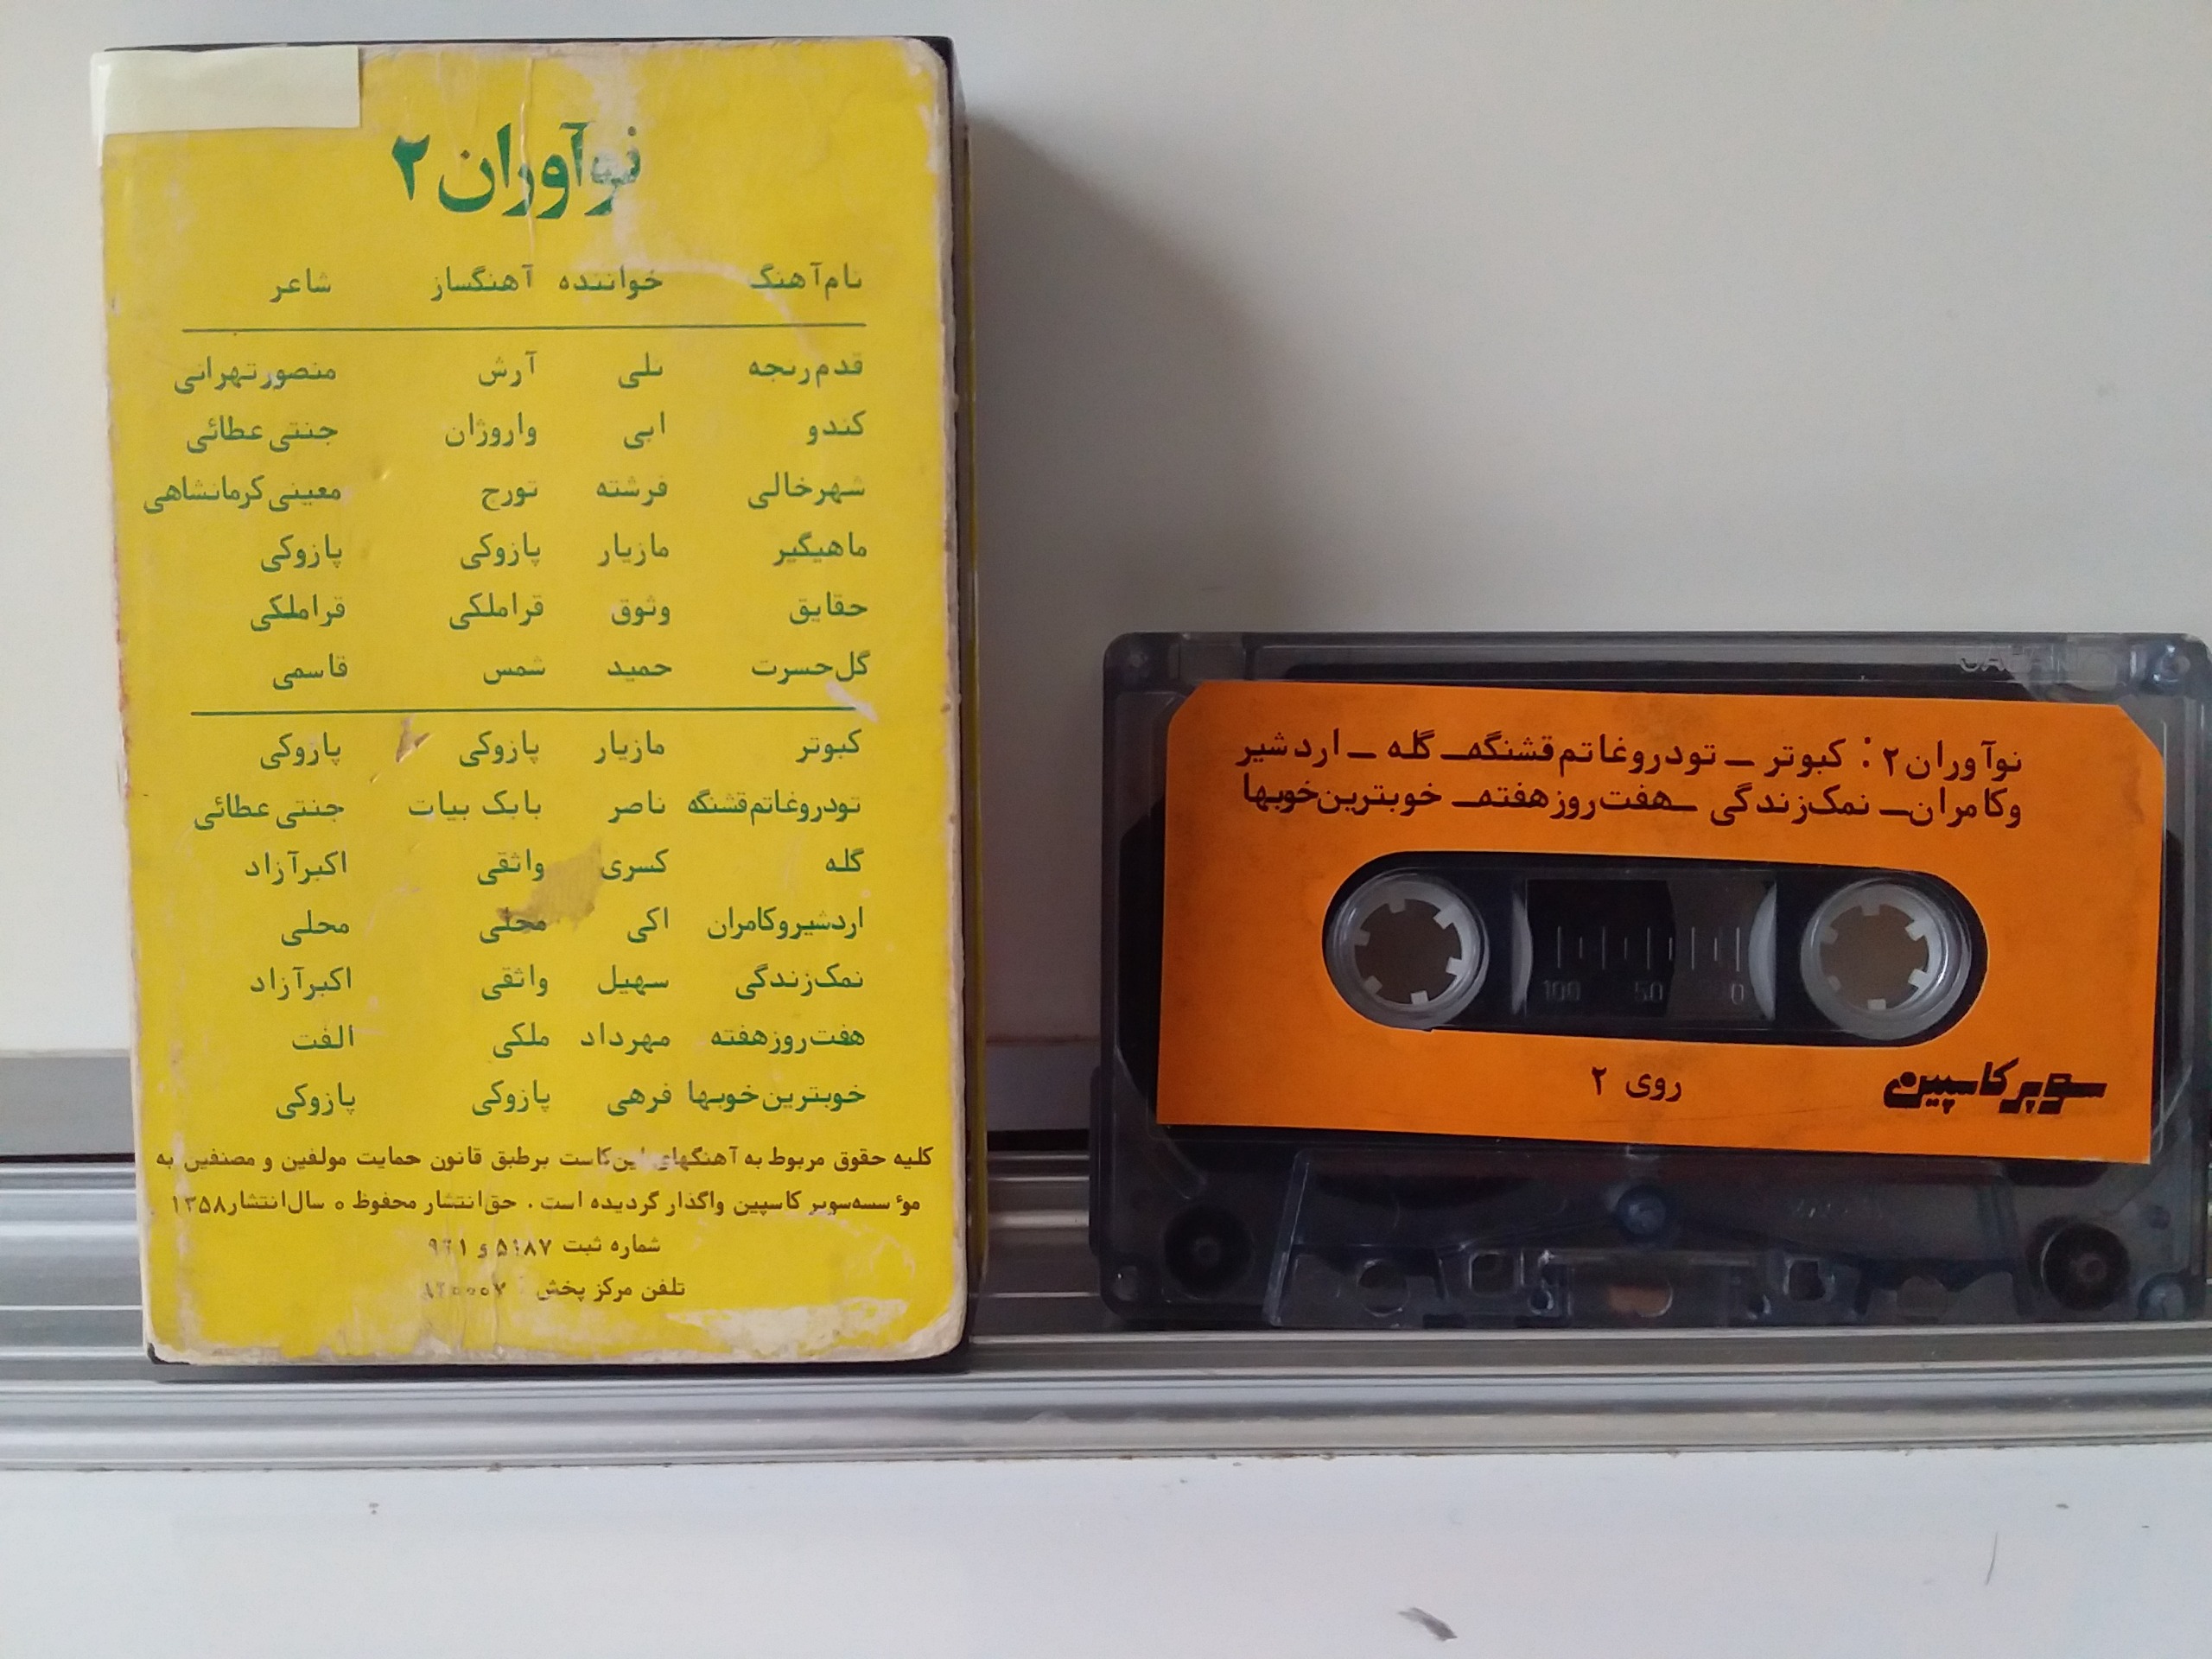 نوآوران ۲
نام آهنگ خواننده آهنگساز شاعر
قدم رنجه نلی آرش منصور تهرانی
کندو ابی واروژان جنتی عطائی
شهر خالی فرشته تورج معینی کرمانشاهی
ماهیگیر مازیار پازوکی پازوکی
حقایق وثوق قراملکی قراملکی
گل حسرت حمید شمس قاسمی
کبوتر مازیار پازوکی پازوکی
تو دروغاتم قشنگه ناصر بابک بیات جنتی عطائی
گله کسری واثقی اکبر آزاد
اردشیر و کامران اکی محلی محلی
نمک زندگی سهیل واثقی اکبر آزاد
هفت روز هفته مهرداد ملکی الفت
خوبترین خوبها فرهی پازوکی پازوکی
کلیه حقوق مربوط به آهنگهای این کاست برطبق قانون حمایت مولفین و مصنفین به
موٴسسه سوپر کاسپین واگذار گردیده است . حق انتشار محفوظ ه سال انتشار ۱۳۵۸
شماره ثبت ۵۱۸۷ و
تلفن مرکز پخش
نوآوران ۲ : کبوتر ـ تو دروغاتم قشنگه ـ گله ـ اردشیر
و کامران ـ نمک زندگی ـ هفت روز هفته ـ خوبترین خوبها
100 50 0
روی ۲
سوپر کاسپین